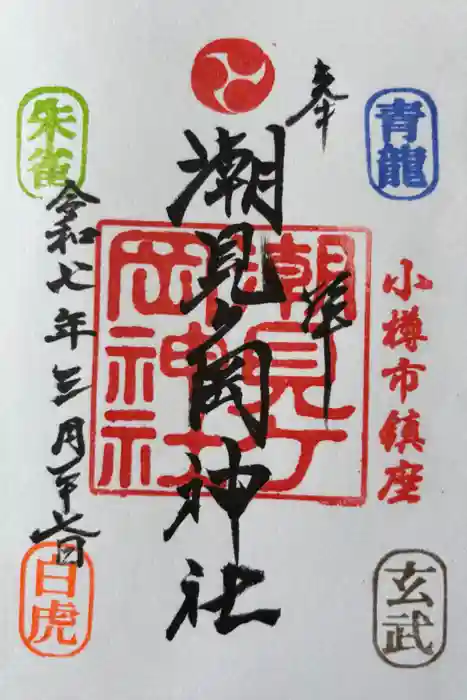 奉拝
青龍
小樽市鎮座
玄武
潮見ヶ岡神社
潮見ヶ岡神社
朱雀
令和七年三月廿六日
白虎